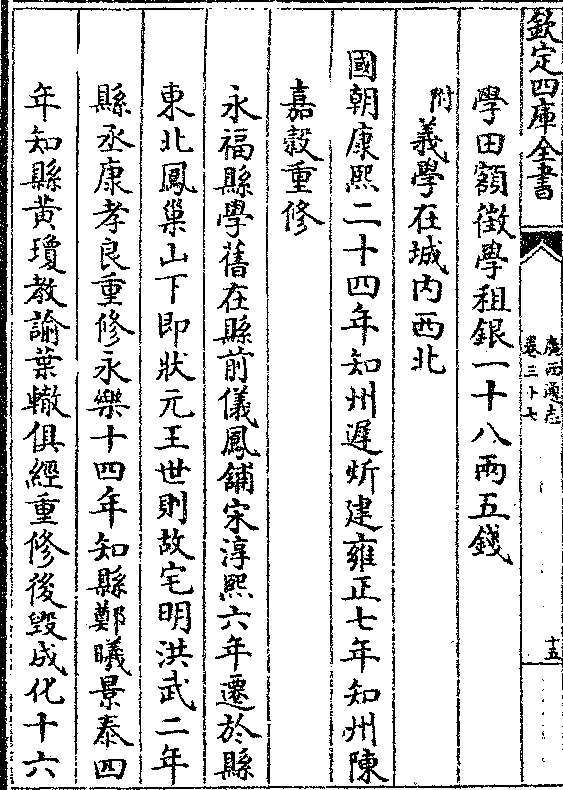 欽定四庫全書
廣西通志
卷三十七
十五
學田額徵學租銀一十八兩五錢
附義學在城内西北
國朝康熙二十四年知州遲炘建雍正七年知州陳
嘉穀重修
永福縣學舊在縣前儀鳳鋪宋淳熙六年遷於縣
東北鳳巢山下即狀元王世則故宅明洪武二年
縣丞康孝良重修永樂十四年知縣鄭曦景泰四
年知縣黄瓊教諭葉轍俱經重修後毁成化十六